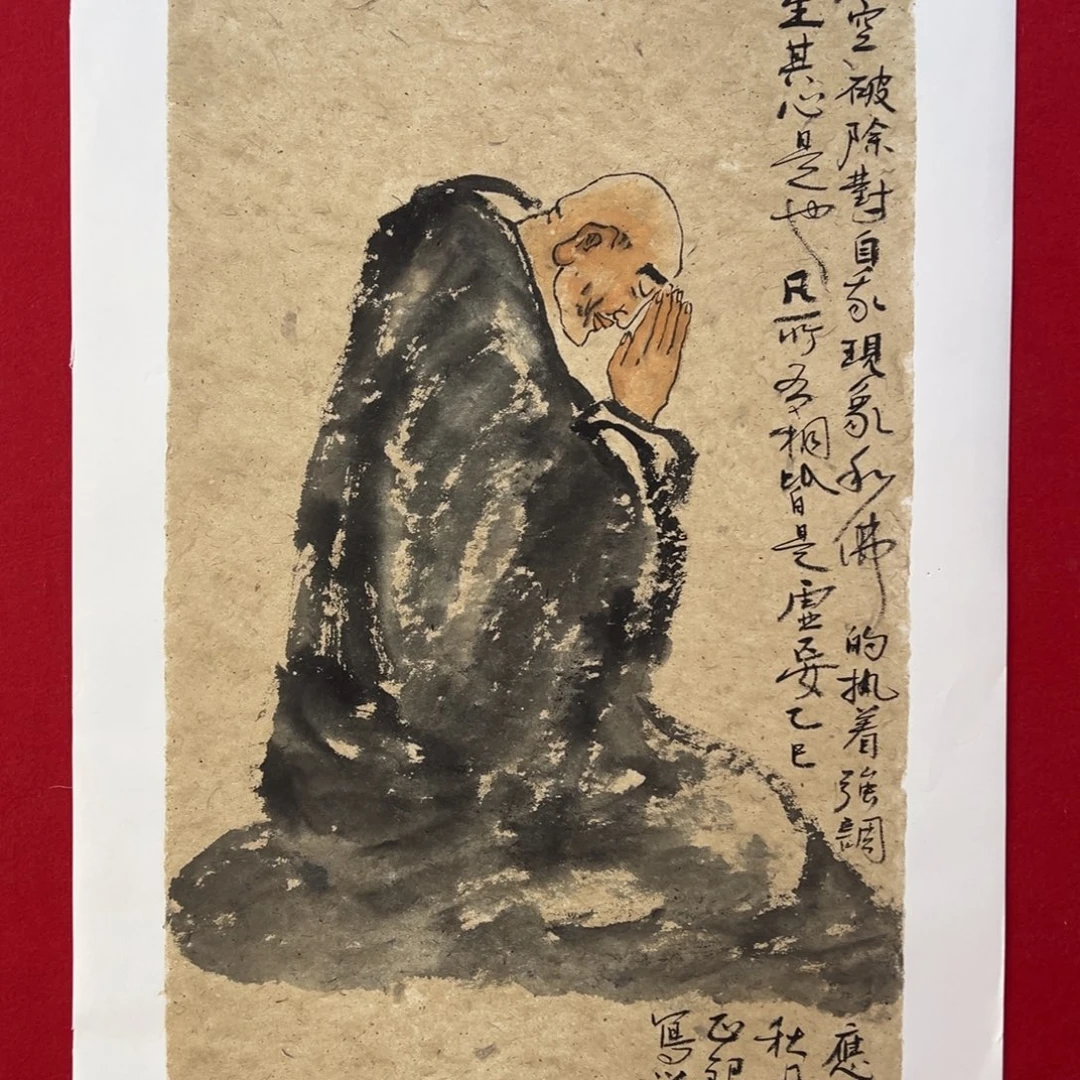 空破除對自我現象和佛的执着強調
應
生其心是也凡所有相皆是虚妄乙巳
秋月
正
寫